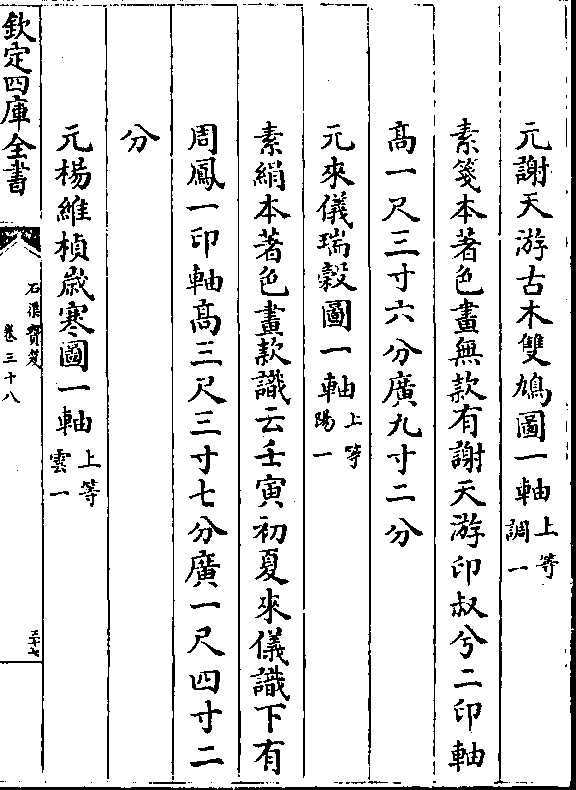 元謝天游古木雙鳩圖一軸上等調一
素箋本著色畫無款有謝天游印叔兮二印軸
高一尺三寸六分廣九寸二分
元來儀瑞穀圖一軸上等陽一
素絹本著色畫款識云壬寅初夏來儀識下有
周鳳一印軸高三尺三寸七分廣一尺四寸二
分
元楊維楨歲寒圖一軸上等雲一
欽定四庫全書
石渠寶笈
卷三十八
三十七